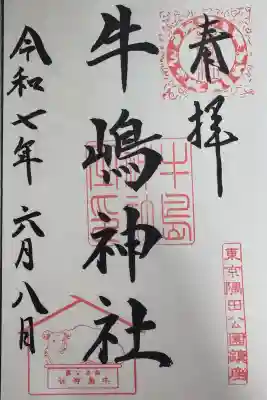 奉拝
東京隅田公園鎮座
牛嶋神社
令和七年 六月八日